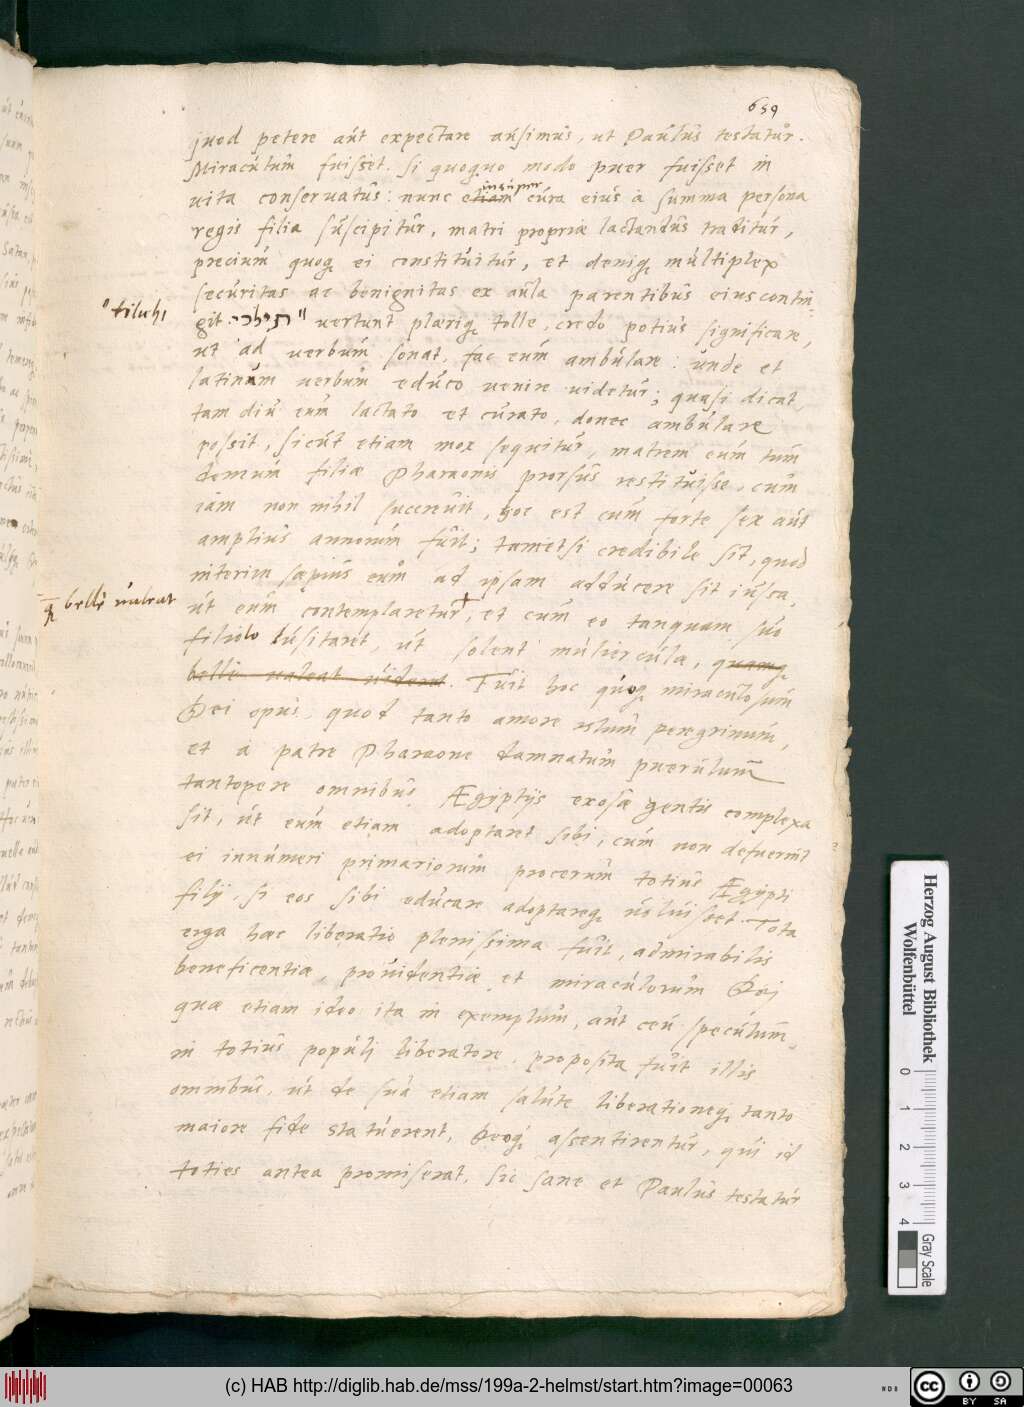 659
quod petere aut expectare ausimus, ut Paulus testatur.
Miraculum fuisset, si quoquo modo puer fuisset in
vita conservatus: nunc etiam insuper cura eius à summa persona
regis filia suscipitur, matri propriæ lactandus traditur,
precium quoq; ei constituitur, et deniq; multiplex
securitas ac benignitas ex aula parentibus eius contin-
git. הילכי" vertunt pleriq; tolle, credo potius significare,
"tiluhi
ut ad verbum sonat, fac eum ambulare: unde et
latinum verbum educo venire videtur; quasi dicat,
tam diu eum lactato et curato, donec ambulare
possit, sicut etiam mox sequitur, matrem eum tum
demum filiæ Pharaonis prorsus restituisse, cum
iam non nihil succrevit, hoc est cum forte sex aut
amplius annorum fuit; tametsi credibile sit, quod
interim sæpius eum ad ipsam adducere sit iussa,
q; belle valeat
ut eum contemplaretur, et cum eo tanquam suo
filiolo lusitaret, ut solent mulierculæ, quamq;
belle valeat videret. Fuit hoc quoq; miraculosum
Dei opus, quod tanto amore istum peregrinum,
et à patre Pharaone damnatum puerulum
tantopere omnibus Ægyptijs exosæ gentis complexa
sit, ut eum etiam adoptaret sibi, cum non defuerint
ei innumeri primariorum procerum totius Ægypti
filij, si eos sibi educare adoptareq; voluisset. Tota
erga hæc liberatio plenissima fuit, admirabilis
beneficentiæ, providentiæ et miraculorum Dei
quæ etiam ideo ita in exemplum, aut ceu speculum,
in totius populi liberatore, proposita fuit illis
omnibus, ut de sua etiam salute liberationeq; tanto
maiore fide statuerent, Deoq; assentirentur, qui id
toties antea promiserat, sic sane et Paulus testatur
Herzog August Bibliothek
Wolfenbüttel
0 1 2 3 4
Gray Scale
(c) HAB http://diglib.hab.de/mss/199a-2-helmst/start.htm?image=00063
cc BY SA